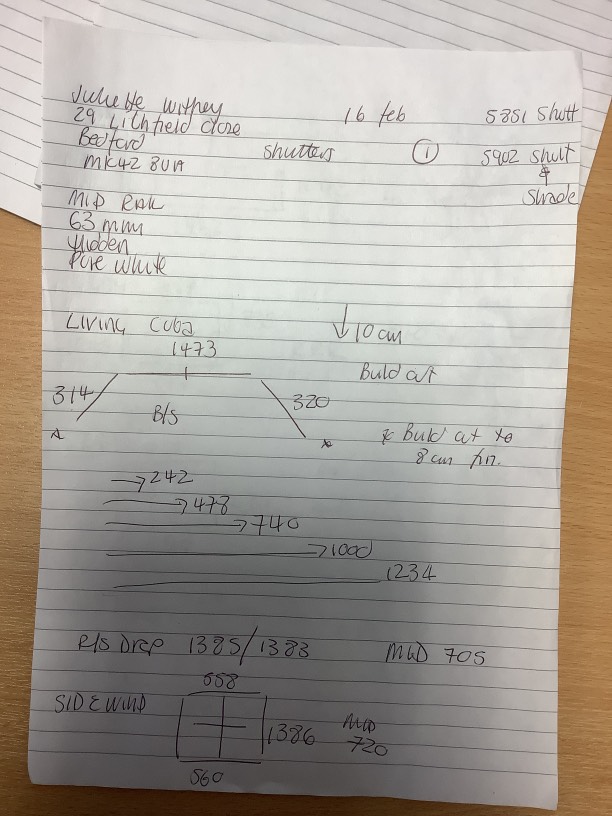 Juliette Withey
29 Lichfield close
Bedford
MK42 8UA
16 feb
5351 Shutt
shutters
1
5902 shutt
&
Shade
MID RAIL
63 mm
Hidden
Pure white
LIVING CUBA
↓ 10 cm
1473
Build out
314
320
B/S
* Build out to
8 cm fin.
242
478
740
1000
1234
R/S DROP 1385/1383
MID 705
558
SIDE WIND
1386
MID
720
560